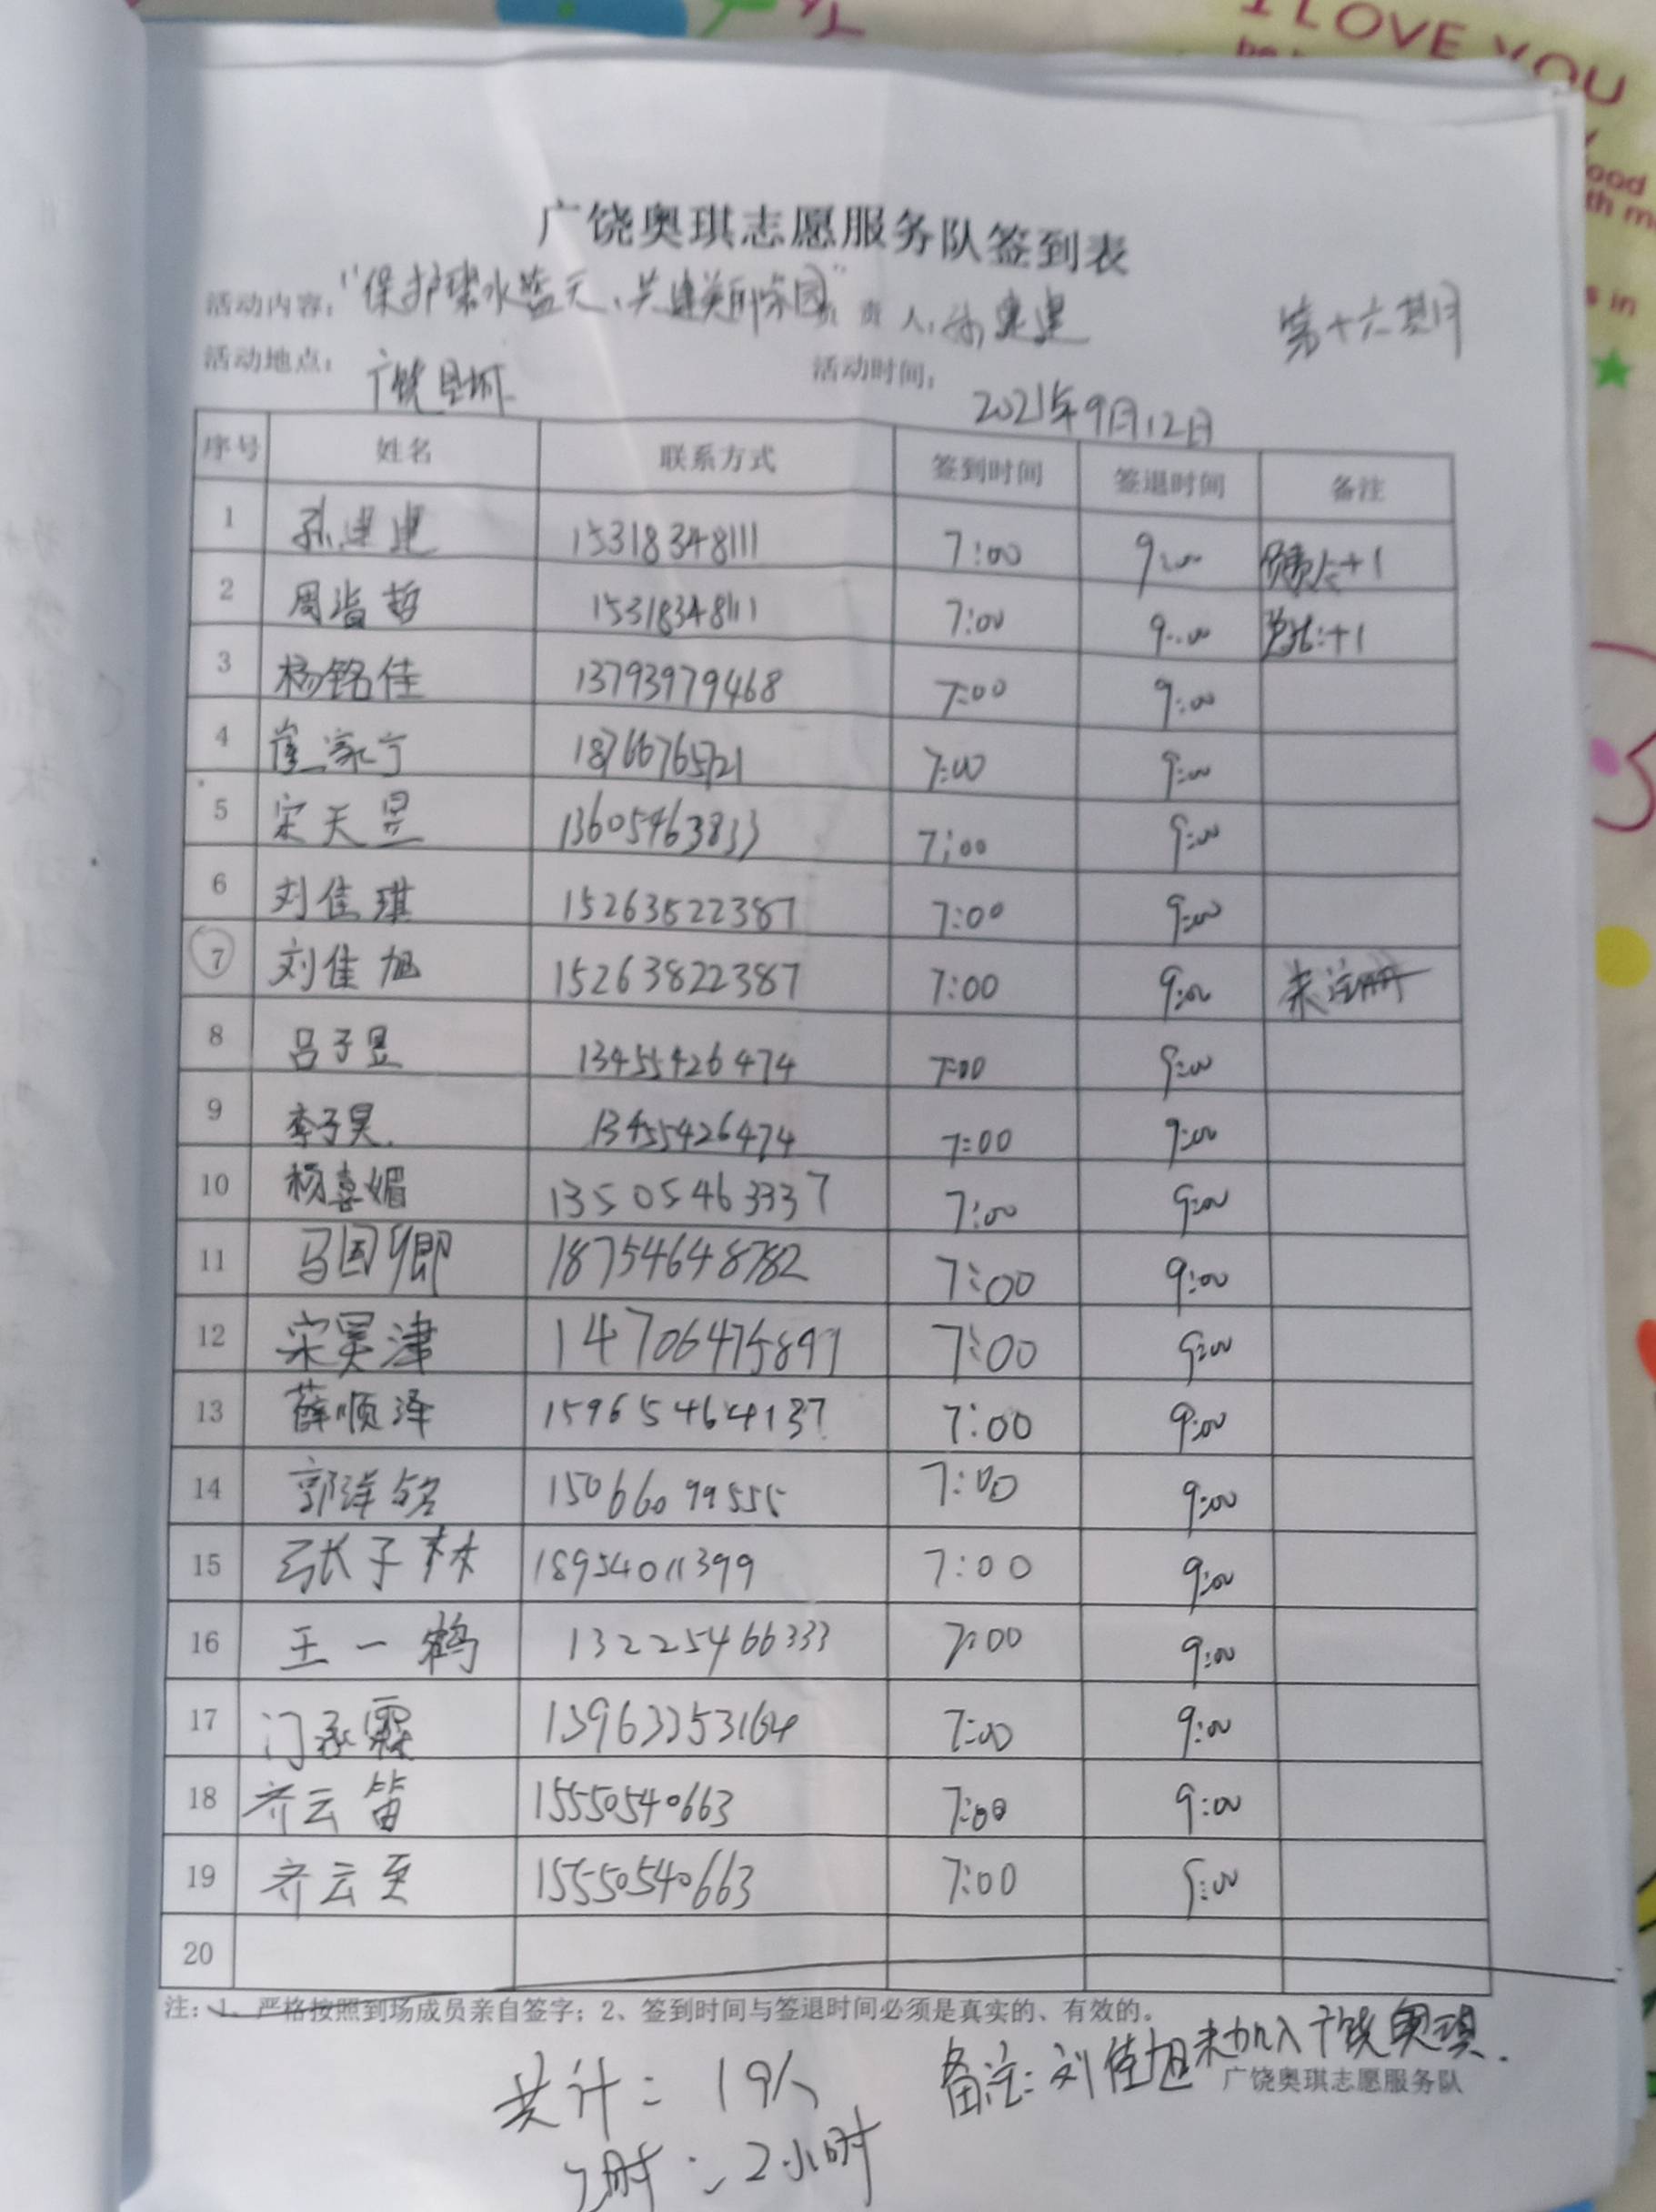 I LOVE YOU
广饶奥琪志愿服务队签到表
活动内容："保护碧水蓝天、共建美丽家园" 负责人：孙建建 第十六期
活动地点：广饶县城 活动时间：2021年9月12日
序号 姓名 联系方式 签到时间 签退时间 备注
1 孙建建 15318348111 7:00 9:00 负责人+1
2 周浩哲 15318348111 7:00 9:00 +1
3 杨铭佳 13793979468 7:00 9:00
4 崔家宁 18766765721 7:00 9:00
5 宋天昱 13605463833 7:00 9:00
6 刘佳琪 15263822387 7:00 9:00
7 刘佳旭 15263822387 7:00 9:00 未注册
8 吕子昱 13455426474 7:00 9:00
9 李子昊 13455426474 7:00 9:00
10 杨喜媚 13505463337 7:00 9:00
11 马国卿 18754648782 7:00 9:00
12 宋昊津 14706475897 7:00 9:00
13 薛顺泽 15965464137 7:00 9:00
14 郭洋铭 15066099555 7:00 9:00
15 张子林 18954011399 7:00 9:00
16 王一鹤 13225466333 7:00 9:00
17 门承霖 13963353164 7:00 9:00
18 齐云笛 15550540663 7:00 9:00
19 齐云至 15550540663 7:00 9:00
20
注：1、严格按照到场成员亲自签字；2、签到时间与签退时间必须是真实的、有效的。
备注：刘佳旭未加入广饶奥琪.
广饶奥琪志愿服务队
共计：19人
工时：2小时